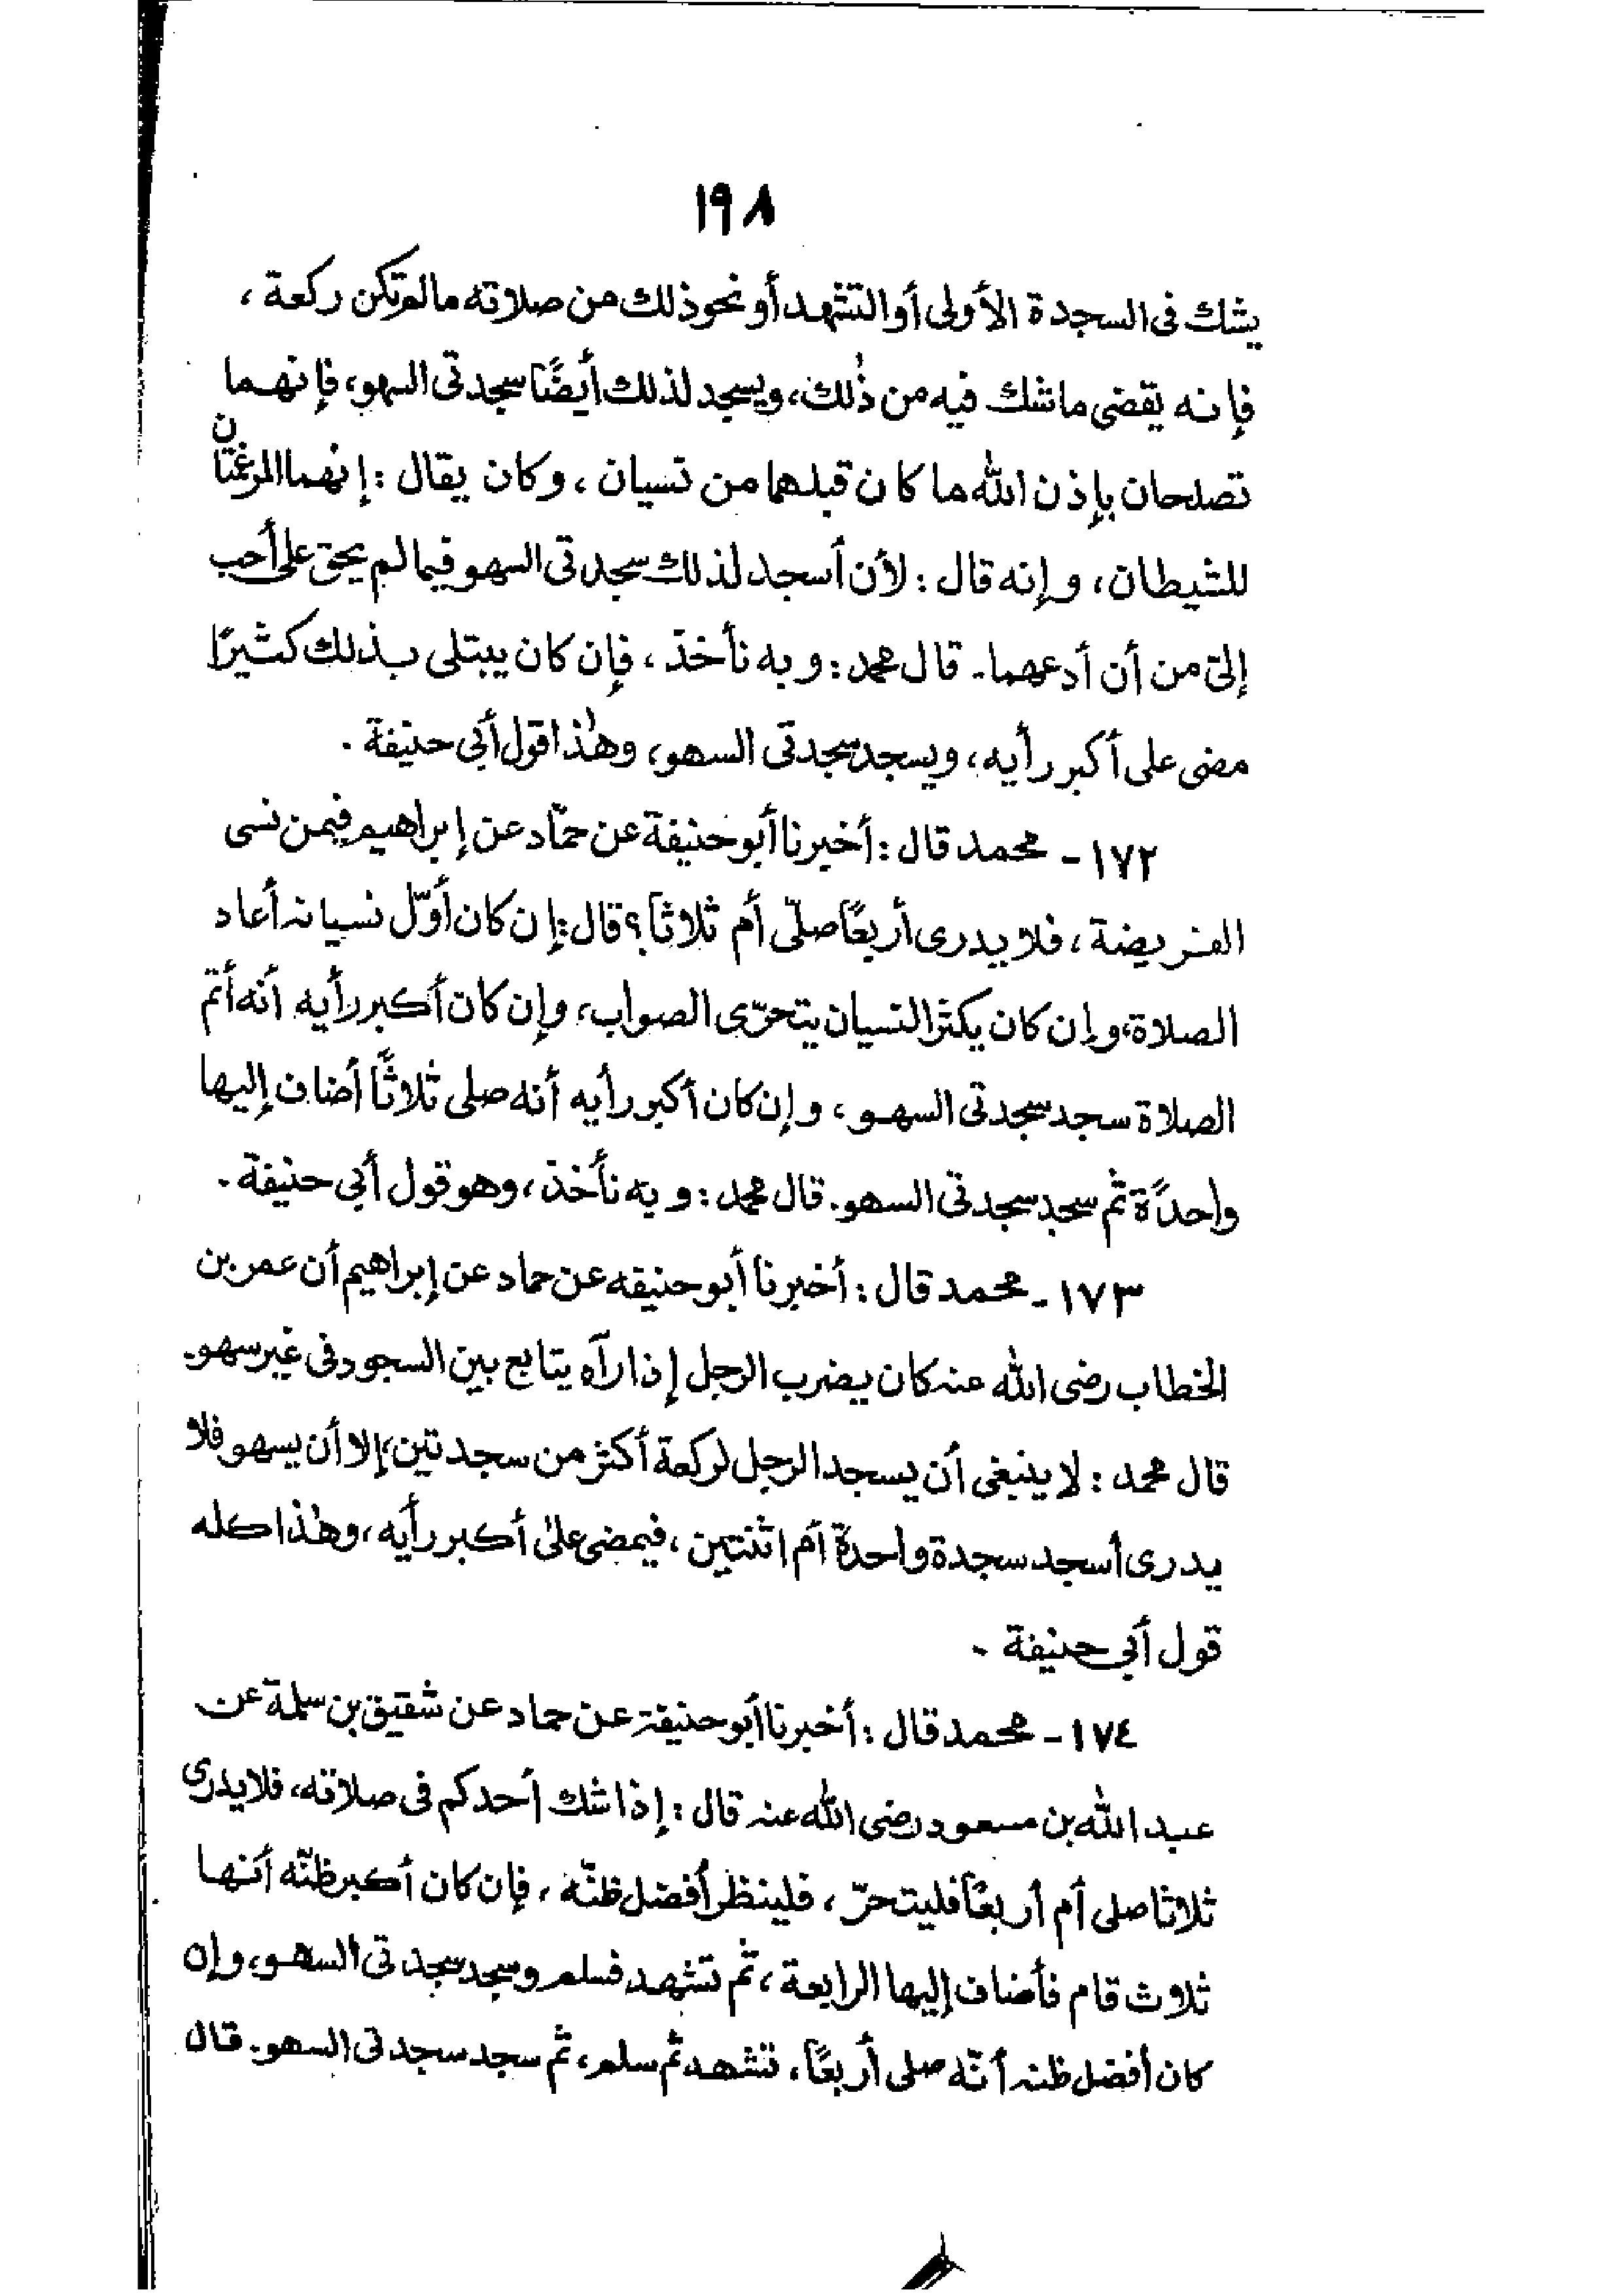 ١٩٨
يشك فى السجدة الأولى أو التشهد أو نحو ذلك من صلاته ما لم تكن ركعة،
فإنه يقضى ما شك فيه من ذٰلك، ويسجد لذلك أيضًا سجدتى السهو، فإنهما
تصلحان بإذن الله ما كان قبلهما من نسيان، وكان يقال: إنهما المرغمتان
للشيطان، وإنه قال: لأن أسجد لذلك سجدتى السهو فيما لم يحق على أحب
إلىّ من أن أدعهما. قال محمد: وبه نأخذ، فإن كان يبتلى بذلك كثيرًا
مضى على أكبر رأيه، ويسجد سجدتى السهو، وهٰذا قول أبى حنيفة.
١٧٢- محمد قال: أخبرنا أبو حنيفة عن حمّاد عن إبراهيم فيمن نسى
الفريضة، فلا يدرى أربعًا صلّى أم ثلاثاً؟ قال: إن كان أوّل نسيانه أعاد
الصلاة، وإن كان يكثر النسيان يتحرّى الصواب، وإن كان أكبر رأيه أنه أتمّ
الصلاة سجد سجدتى السهو، وإن كان أكبر رأيه أنه صلى ثلاثًا أضاف إليها
واحدًة ثم سجد سجدتى السهو. قال محمد: وبه نأخذ، وهو قول أبى حنيفة.
١٧٣- محمد قال: أخبرنا أبو حنيفه عن حماد عن إبراهيم أن عمر بن
الخطاب رضى الله عنه كان يضرب الرجل إذا رآه يتابع بين السجود فى غير سهو.
قال محمد: لا ينبغى أن يسجد الرجل لركعة أكثر من سجدتين، إلا أن يسهو فلا
يدرى أسجد سجدة واحدة أم اثنتين، فيمضى علىٰ أكبر رأيه، وهٰذا كله
قول أبى حنيفة.
١٧٤- محمد قال: أخبرنا أبو حنيفة عن حماد عن شقيق بن سلمة عن
عبد الله بن مسعود رضى الله عنه قال: إذا شك أحدكم فى صلاته، فلا يدرى
ثلاثا صلى أم أربعًا فليتحرّ، فلينظر أفضل ظنّه، فإن كان أكبر ظنّه أنها
ثلاث قام فأضاف إليها الرابعة، ثم تشهد فسلم وسجد سجدتى السهو، وإن
كان أفضل ظنه أنّه صلى أربعًا، تشهد ثم سلم، ثم سجد سجدتى السهو. قال